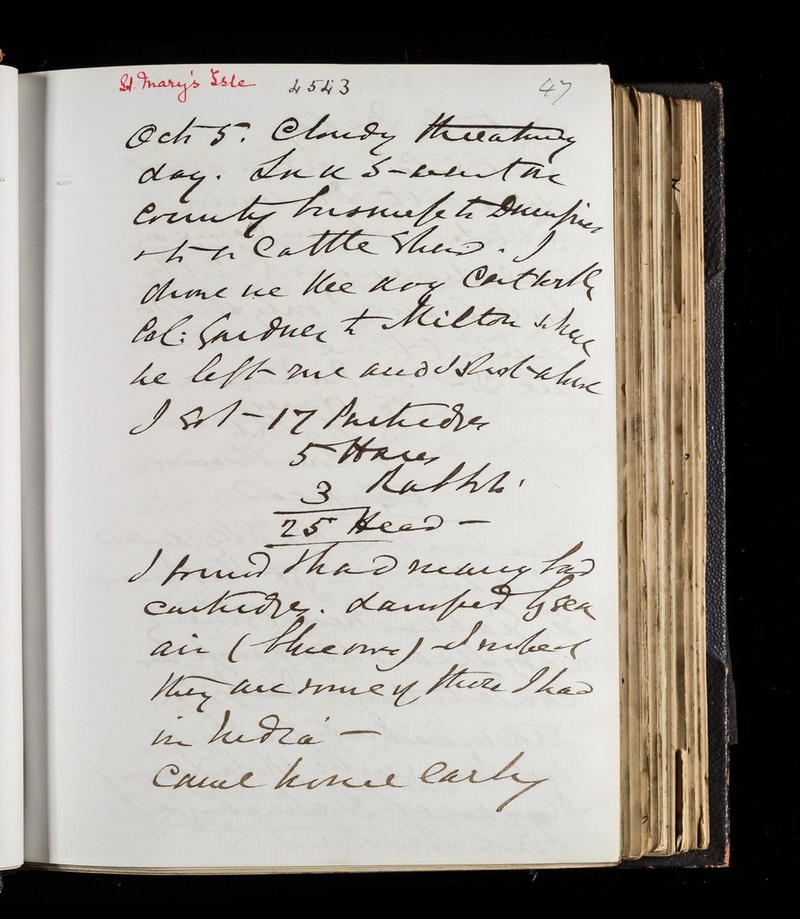 St. Mary's Isle 4543 47
Oct 5. Cloudy threatening
day. went on
County business to Dumfries
& to a Cattle Show. I
drove
Col: Gardner to Milton where
he left me and I shot alone
I got - 17 Partridges
5 Hares
3 Rabbits
25 Head -
I found I had many bad
cartridges. damped by sea
air (blue ones) - I suspect
they are some of those I had
in India -
Came home early